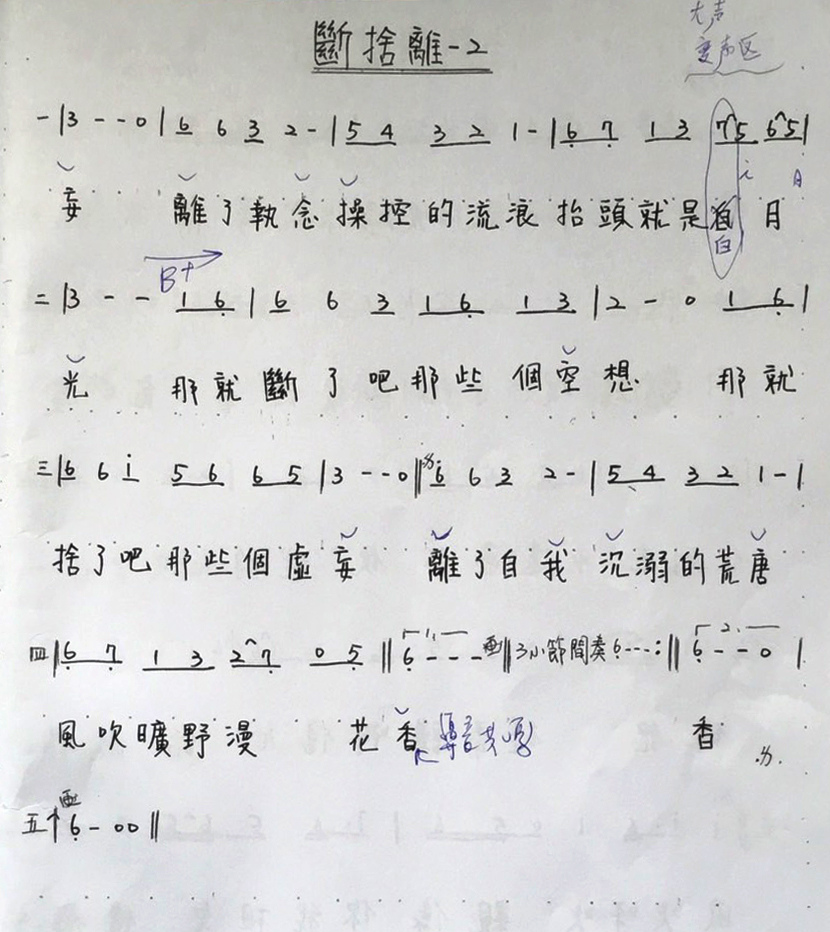 斷捨離-2
大声
变声区
一|3 - - 0|6 6 3 2 -|5 4 3 2 1 -|6 7 1 3 7 5 6 5|
i
妄 離了執念操控的流浪 抬頭就是 月
白
B+
二|3 - - 1 6|6 6 3 1 6 1 3|2 - 0 1 6|
光 那就斷了吧那些個空想 那就
三|6 6 i 5 6 6 5|3 - - 0‖6 6 3 2 -|5 4 3 2 1 -|
捨了吧那些個虛妄 離了自我沉溺的荒唐
四|6 7 1 3 2 7 0 5‖1. 6 - - -‖3小節間奏 6 - - -:‖2. 6 - - 0|
風吹曠野漫 花香 香
五 6 - 0 0‖